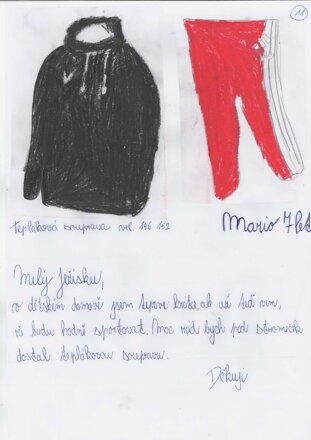 11
tepláková souprava vel. 146 152
Mario 7 let
Milý Ježísku,
v dětském domově jsem teprve krátce, ale už teď vím,
že budu hodně sportovat. Moc rád bych pod stromeček
dostal teplákovou soupravu.
Děkuji